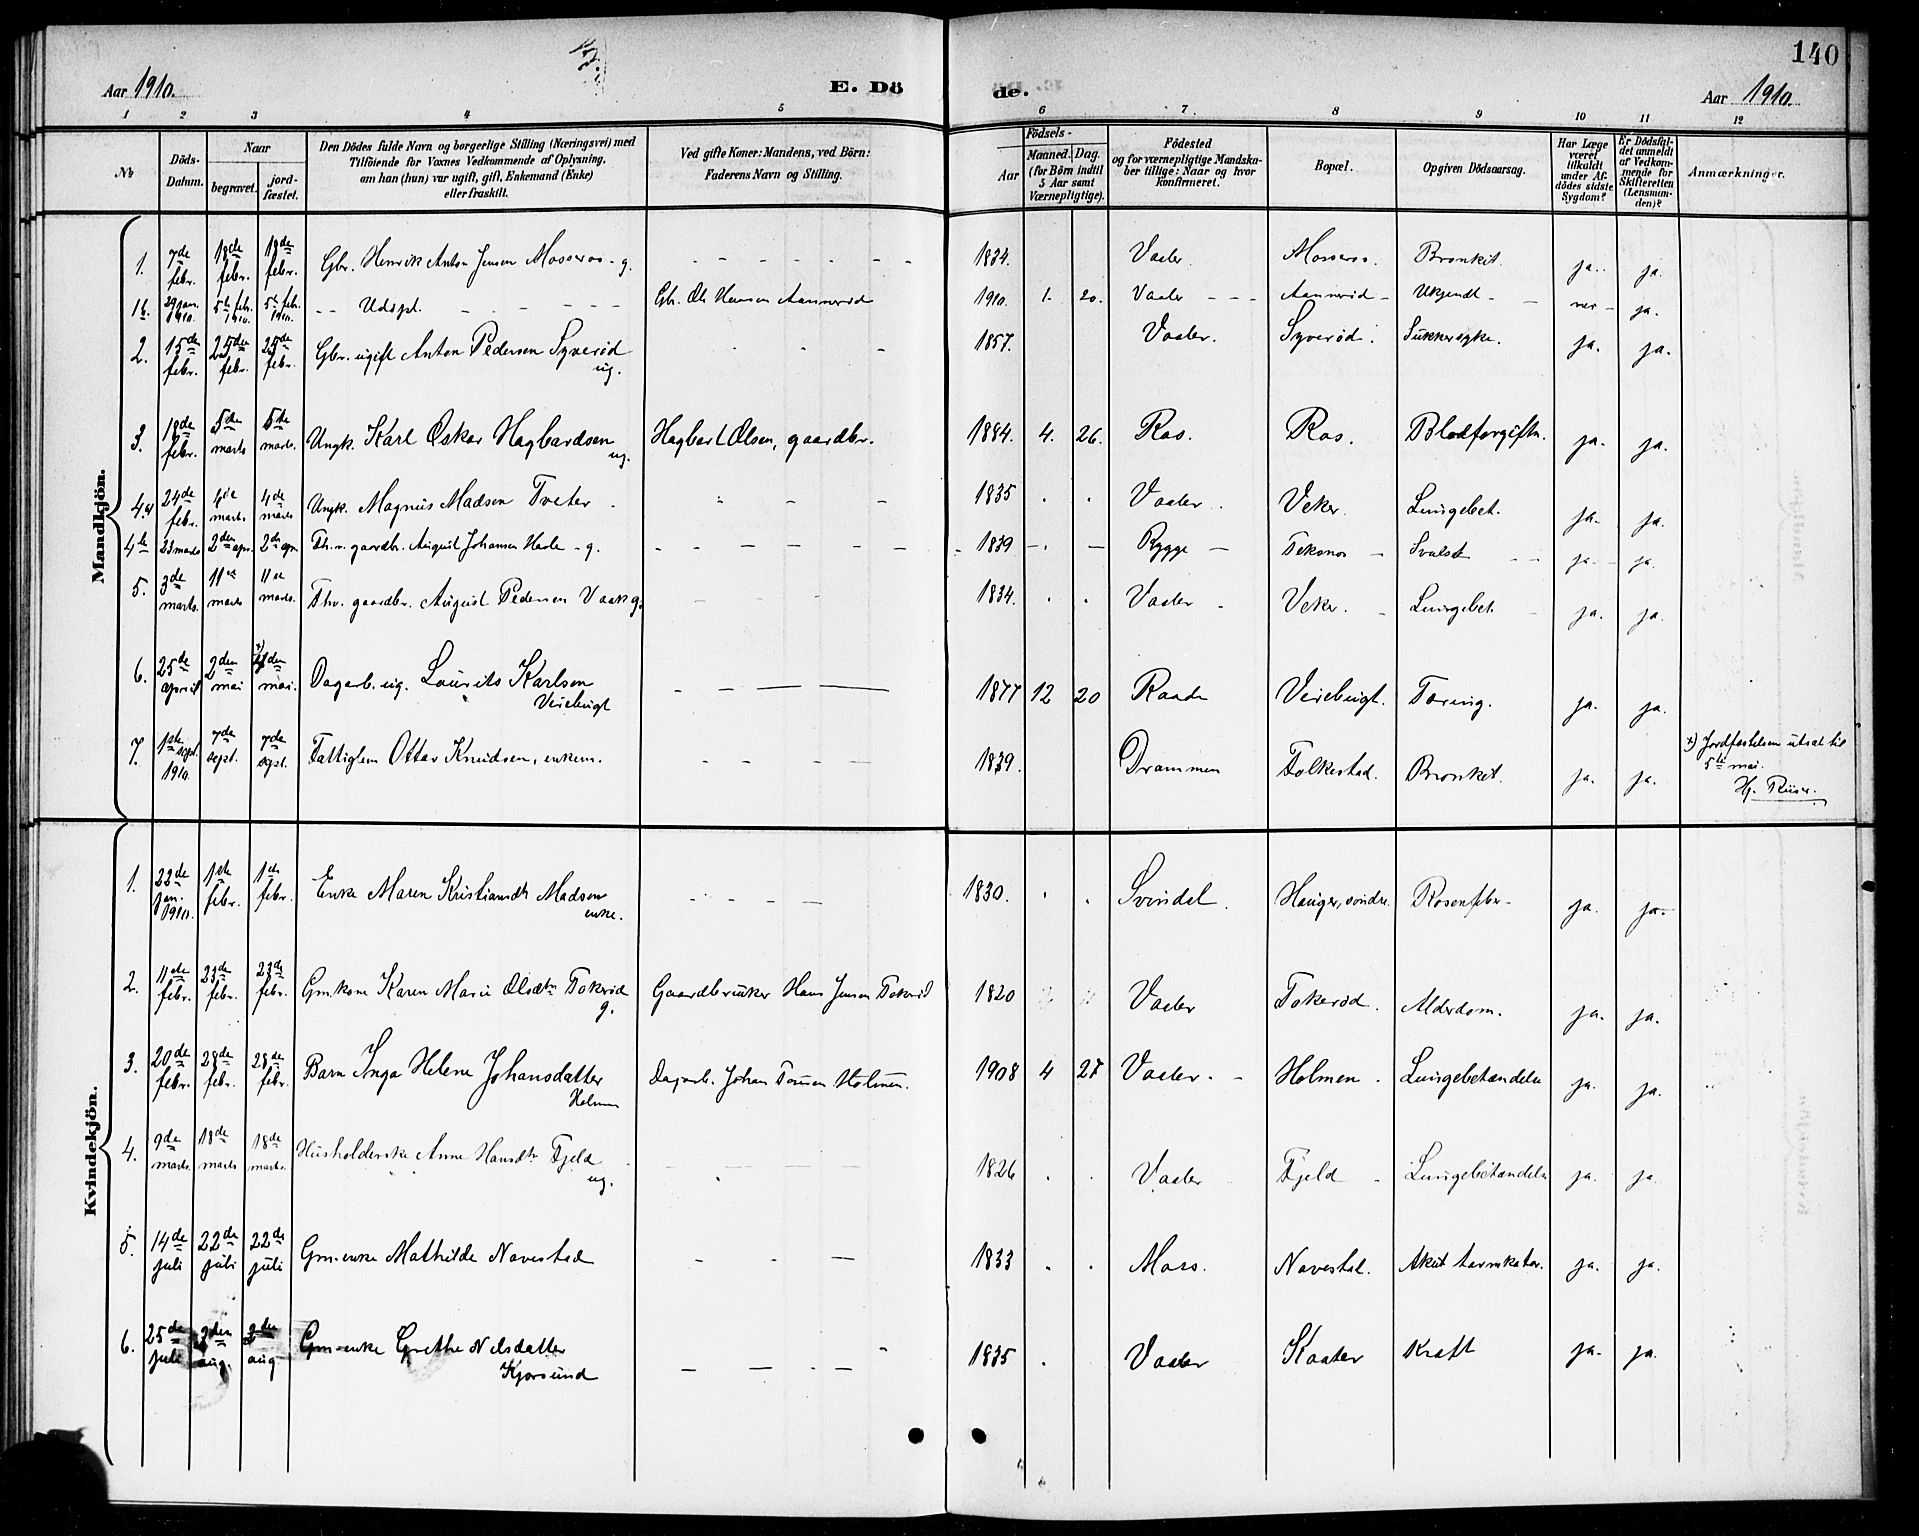 140
Aar 1910.
E. Dö
de.
Aar 1910.
1 2 3 4 5 6 7 8 9 10 11 12
No
Döds-Datum.
Naar
begravet.
jord-fæstet.
Den Dödes fulde Navn og borgerlige Stilling (Næringsvei) med
Tilföiende for Voxnes Vedkommende af Oplysning,
om han (hun) var ugift, gift, Enkemand (Enke)
eller fraskilt.
Ved gifte Koner: Mandens, ved Börn:
Faderens Navn og Stilling.
Födsels-
Aar
Maaned. Dag.
(for Börn indtil
5 Aar samt
Værnepligtige).
Födested
og for værnepligtige Mandska-
ber tillige: Naar og hvor
konfirmeret.
Bopæl.
Opgiven Dödsaarsag.
Har Læge
været
tilkaldt
under Af-
dödes sidste
Sygdom?
Er Dödsfal-
det anmeldt
af Vedkom-
mende for
Skifteretten
(Lensman-
den)?
Anmærkninger.
Mandkjön.
1. 7de febr. 18de febr. 18de febr. Gbr. Henrik Anton Jensen Mosseros - g. 1834. Vaaler. Mosseros. Bronkit. ja. ja.
1b. 29 jan. 1910. 5te febr. 1910. 5te febr. 1910. Udøpt. Gbr. Ole Hansen Aannerød 1910. 1. 20. Vaaler Aannerød Ukjendt nei ja.
2. 15de febr. 25de febr. 25de febr. Gbr. ugift Anton Pedersen Syverød ug. 1857. Vaaler. Syverød. Sukkersyke. ja. ja.
3. 18de febr. 5te marts 5te marts. Ungk. Karl Oskar Hagbardsen ug. Hagbart Olsen, gaardbr. 1884. 4. 26. Ros. Ros. Blodforgiftn. ja. ja.
4a 24de febr. 4de marts 4de marts Ungk. Magnus Madsen Tveter 1835 Vaaler. Veker. Lungebet. ja. ja.
4b 23 marts 2den apr. 2den apr. Fh.v. gaardbr. August Johansen Hasle - g. 1839 Rygge Teksnes Svulst ja. ja.
5. 3de marts. 11te marts 11te marts. Fhv. gaardbr. August Pedersen Vaak g. 1834. Vaaler Veker. Lungebet. ja. ja.
6. 25de april 2den mai x) 2den mai. Dagarb. ug. Laurits Karlsen Veiebugt 1877 12 20 Raade Veiebugt. Tæring. ja. ja.
7. 1ste sept. 1910. 7de sept. 7de sept. Fattiglem Otter Knudsen, enkem. 1839. Drammen Folkestad. Bronkit. ja. ja.
x) Jordfæstelsen utsat til
5te mai.
Hj. Riiser.
Kvindekjön.
1. 22de jan. 1910. 1ste febr. 1ste febr. Enke Maren Kristiansdtr Madsen enke. 1830. Svindal. Hauger, søndre. Rosenfeber ja. ja.
2. 11de febr. 23de febr. 23de febr. Gmkone Karen Marie Olsdtr Tokerød g. Gaardbruker Hans Jensen Tokerød 1820 Vaaler Tokerød. Alderdom. ja. ja.
3. 20de febr. 28de febr. 28de febr. Barn Inga Helene Johansdatter Holmen Dagarb. Johan Holmen. 1908 4 27 Vaaler. Holmen. Lungebetændelse ja. ja.
4. 9de marts. 18de marts 18de marts. Husholderske Anne Hansdtr Fjeld ug. 1826 Vaaler Fjeld Lungebetændelse ja. ja.
5. 14de juli 22de juli 22de juli Gm-enke Mathilde Navestad 1833 Moss. Navestad. Akut tarmkatar. ja. ja.
6. 25de juli 2den aug. 2den aug Gm-enke Grethe Nilsdatter Kjørsund 1835 Vaaler Kaater Kræft ja. ja.